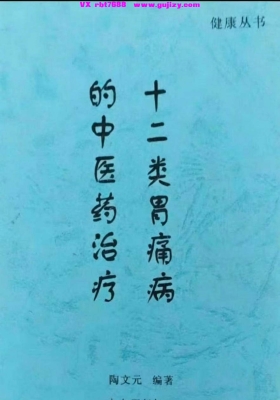 VX rbt7888 www.gujizy.com
健康丛书
十二类胃痛病
的中医药治疗
陶文元 编著